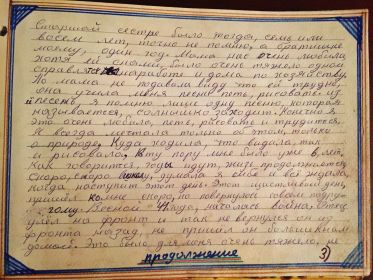 Старшой сестре было тогда, семь или
восем лет, точно не помню, а братишке
моему, один год. Мама нас очень любила
хотя ей самой, было очень тяжело одной
справлят на работе и дома по хозяйству.
Но мама не подавала виду что ей трудно,
она учила меня песни петь, рисовать и
песень, я помню лишь одну песню, которая
называется, солнышко заходит. Конечно я
это очень любила, петь, рисовать и трудится,
Я всегда мечтала только об этом, только
о природе. Куда ходила, что видела так
и рисовала. В ту пору мне было уже лет,
как говорится, года идут, жизнь продолжается
скоро, скоро школу, думала я себе и всё ждала,
когда наступит этот день. Этот щастливый день,
пришёл ко мне скоро, но повернулось совсем по
тому. Весной года, началась война. Отец
ушёл на фронт и так не вернулся он из
фронта назад, не пришёл он больше к нам
домой. Это было для меня очень тяжело, не
продолжение
3)